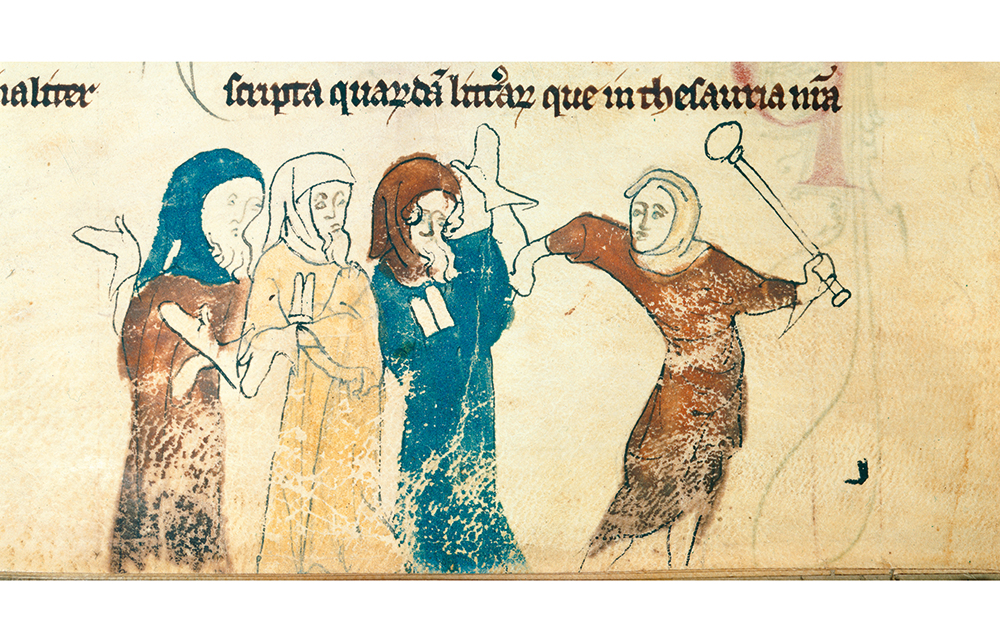 ialiter scripta quarūdā litt'arū que in thesauria mīa